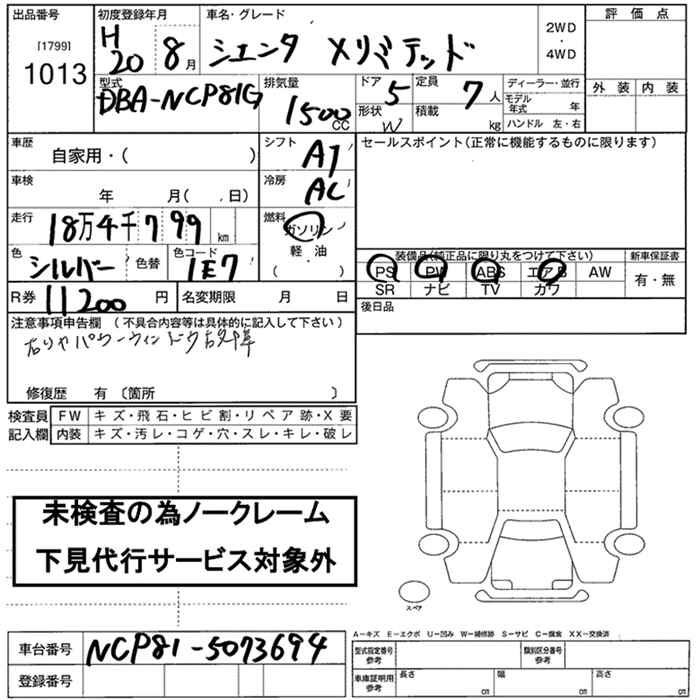 出品番号 [1799] 1013
初度登録年月 H 20 8月
車名・グレード シエンタ Xリミテッド
2WD・4WD
評価点
外装 内装
型式 DBA-NCP81G
排気量 1500 CC
ドア 5 定員 7人
形状 W 積載 kg
ディーラー・並行
モデル年式 年
ハンドル 左・右
車歴 自家用・( )
シフト AT
セールスポイント(正常に機能するものに限ります)
車検 年 月( 、日)
冷房 AC
走行 18万4千799 km
燃料 ガソリン 軽・油 ・ ( )
色 シルバー 色替 色コード 1E7
装備品(純正品に限り丸をつけて下さい)
PS PW ABS エアB AW
SR ナビ TV カワ
新車保証書 有・無
R券 11200 円 名変期限 月 日
後日品
注意事項申告欄 (不具合内容等は具体的に記入して下さい)
パワーウィンドウ故障
修復歴 有 〔箇所 〕
検査員記入欄
FW キズ・飛石・ヒビ割・リペア跡・X要
内装 キズ・汚レ・コゲ・穴・スレ・キレ・破レ
未検査の為ノークレーム
下見代行サービス対象外
スペア
A-キズ E-エクボ U-凹み W-補修跡 S-サビ C-腐食 XX-交換済
車台番号 NCP81-5073694
登録番号
型式指定番号 参考 類別区分番号 参考
車庫証明用 参考 長さ cm 幅 cm 高さ cm